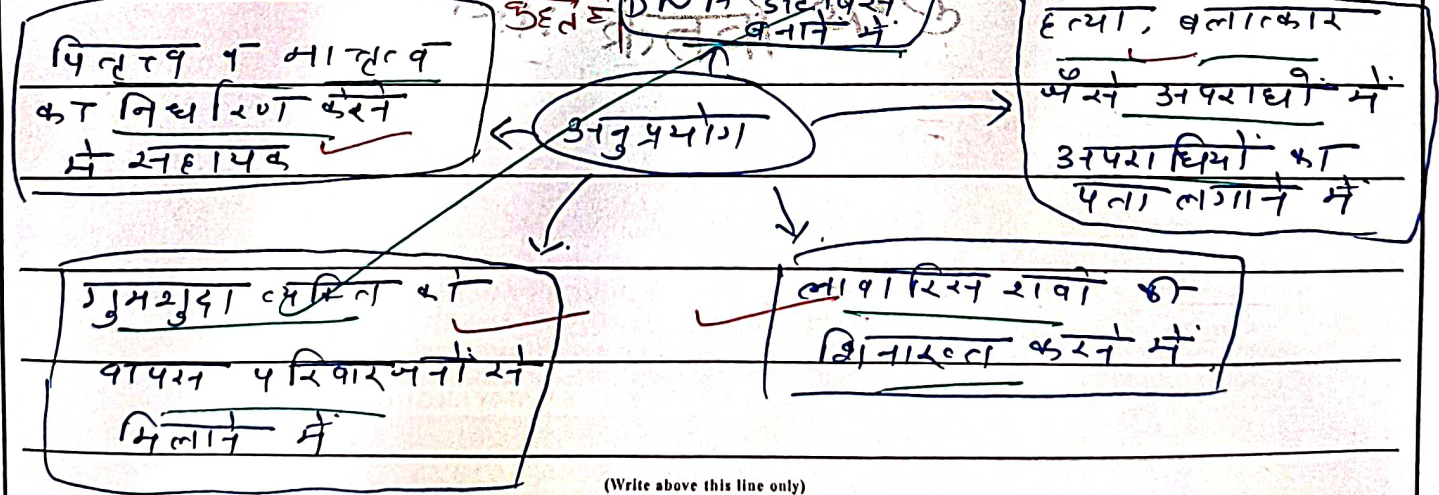 कहते हैं
DNA डाटाबेस
बनाने में
पितृत्व व मातृत्व
का निर्धारण करने
में सहायक
अनुप्रयोग
हत्या, बलात्कार
जैसे अपराधों में
अपराधियों का
पता लगाने में
गुमशुदा व्यक्ति को
वापस परिवारजनों से
मिलाने में
लावारिस शवों की
शिनाख्त करने में
(Write above this line only)